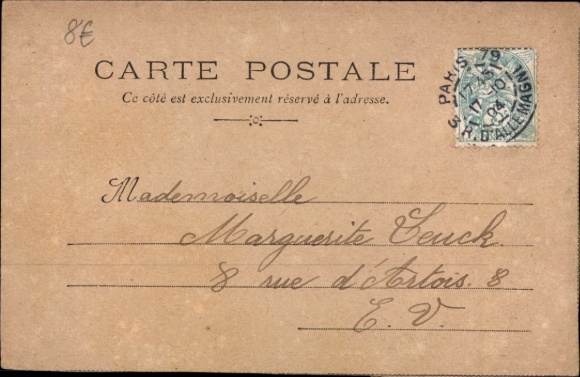 8€
CARTE POSTALE
Ce côté est exclusivement réservé à l'adresse.
PARIS 79
17 10
04
3 R. D'ALLEMAGNE
Mademoiselle
Marguerite
8 rue d'Artois. 8
E. V.